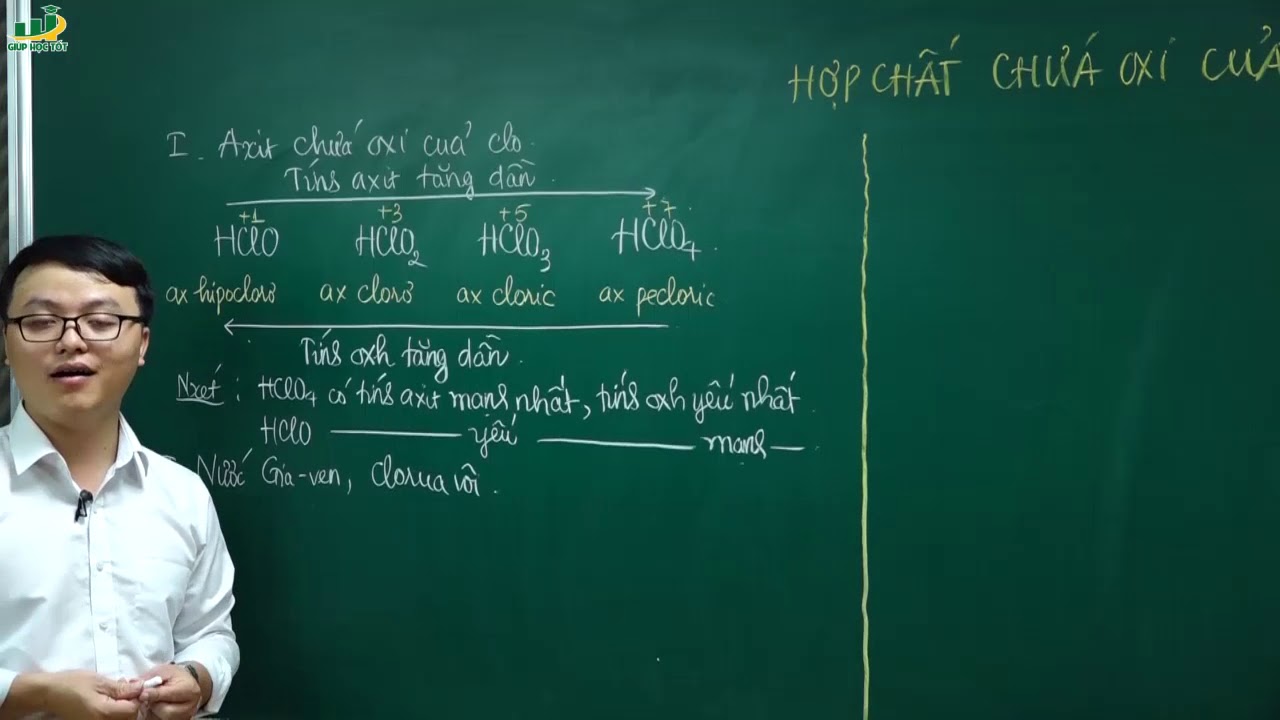 GIÚP HỌC TỐT
HỢP CHẤT CHỨA OXI CỦA
I. Axit chứa oxi của clo.
Tính axit tăng dần.
+1 +3 +5 +7
HClO HClO₂ HClO₃ HClO₄.
ax hipoclorơ ax clorơ ax cloric ax pecloric
Tính oxh tăng dần.
Nxét: HClO₄ có tính axit mạnh nhất, tính oxh yếu nhất.
HClO ——— yếu ——— mạnh —
Nước Gia-ven, clorua vôi.